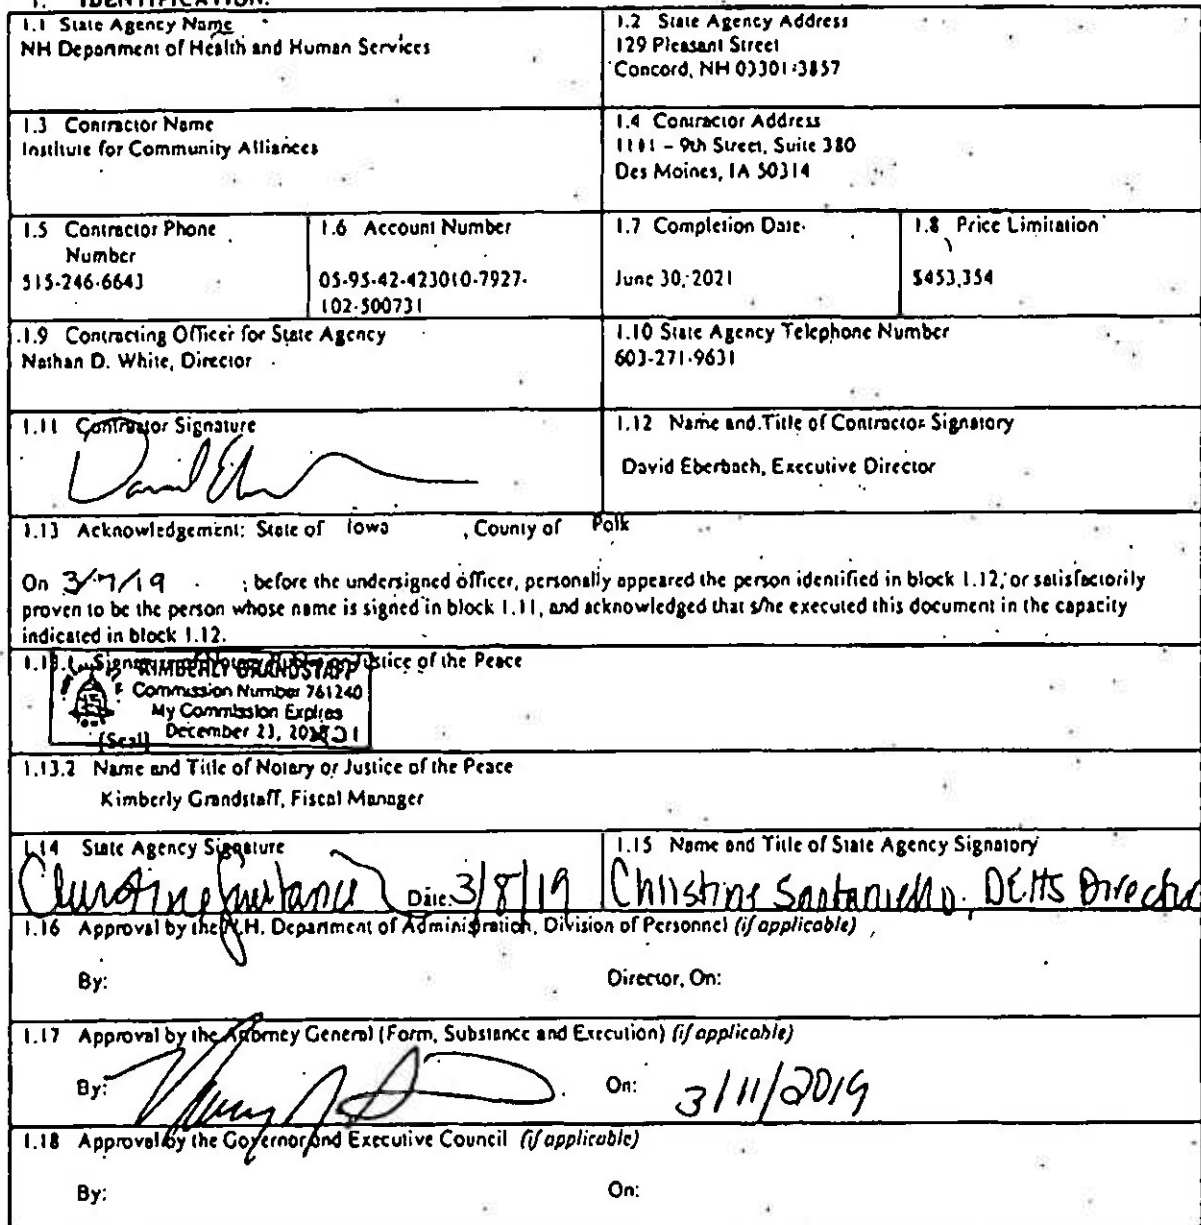 1. IDENTIFICATION.
1.1 State Agency Name
NH Department of Health and Human Services
1.2 State Agency Address
129 Pleasant Street
Concord, NH 03301-3857
1.3 Contractor Name
Institute for Community Alliances
1.4 Contractor Address
1111 – 9th Street, Suite 380
Des Moines, IA 50314
1.5 Contractor Phone
Number
515-246-6643
1.6 Account Number
05-95-42-423010-7927-
102-500731
1.7 Completion Date
June 30, 2021
1.8 Price Limitation
$453,354
1.9 Contracting Officer for State Agency
Nathan D. White, Director
1.10 State Agency Telephone Number
603-271-9631
1.11 Contractor Signature
1.12 Name and Title of Contractor Signatory
David Eberbach, Executive Director
1.13 Acknowledgement: State of Iowa , County of Polk
On 3/7/19 , before the undersigned officer, personally appeared the person identified in block 1.12, or satisfactorily
proven to be the person whose name is signed in block 1.11, and acknowledged that s/he executed this document in the capacity
indicated in block 1.12.
1.13.1 Signature of Notary Public or Justice of the Peace
KIMBERLY GRANDSTAFF
Commission Number 761240
My Commission Expires
[Seal] December 23, 20
1.13.2 Name and Title of Notary or Justice of the Peace
Kimberly Grandstaff, Fiscal Manager
1.14 State Agency Signature
Date: 3/8/19
1.15 Name and Title of State Agency Signatory
Christine Santaniello, DEHS Director
1.16 Approval by the N.H. Department of Administration, Division of Personnel (if applicable)
By: Director, On:
1.17 Approval by the Attorney General (Form, Substance and Execution) (if applicable)
By: On: 3/11/2019
1.18 Approval by the Governor and Executive Council (if applicable)
By: On: